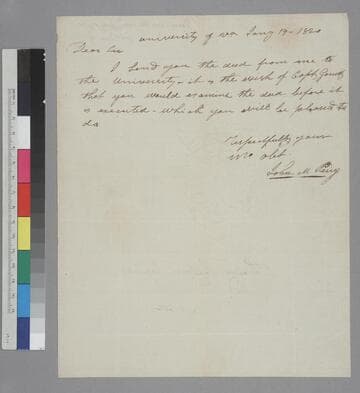 university of va Jany 19-1820
Dear Sir
I Send you the deed from me to
the University - it is the wish of Capt.
that you would examine the deed before it
is executed - which you will be pleased to
do
respectfully yours
obt
John M Perry